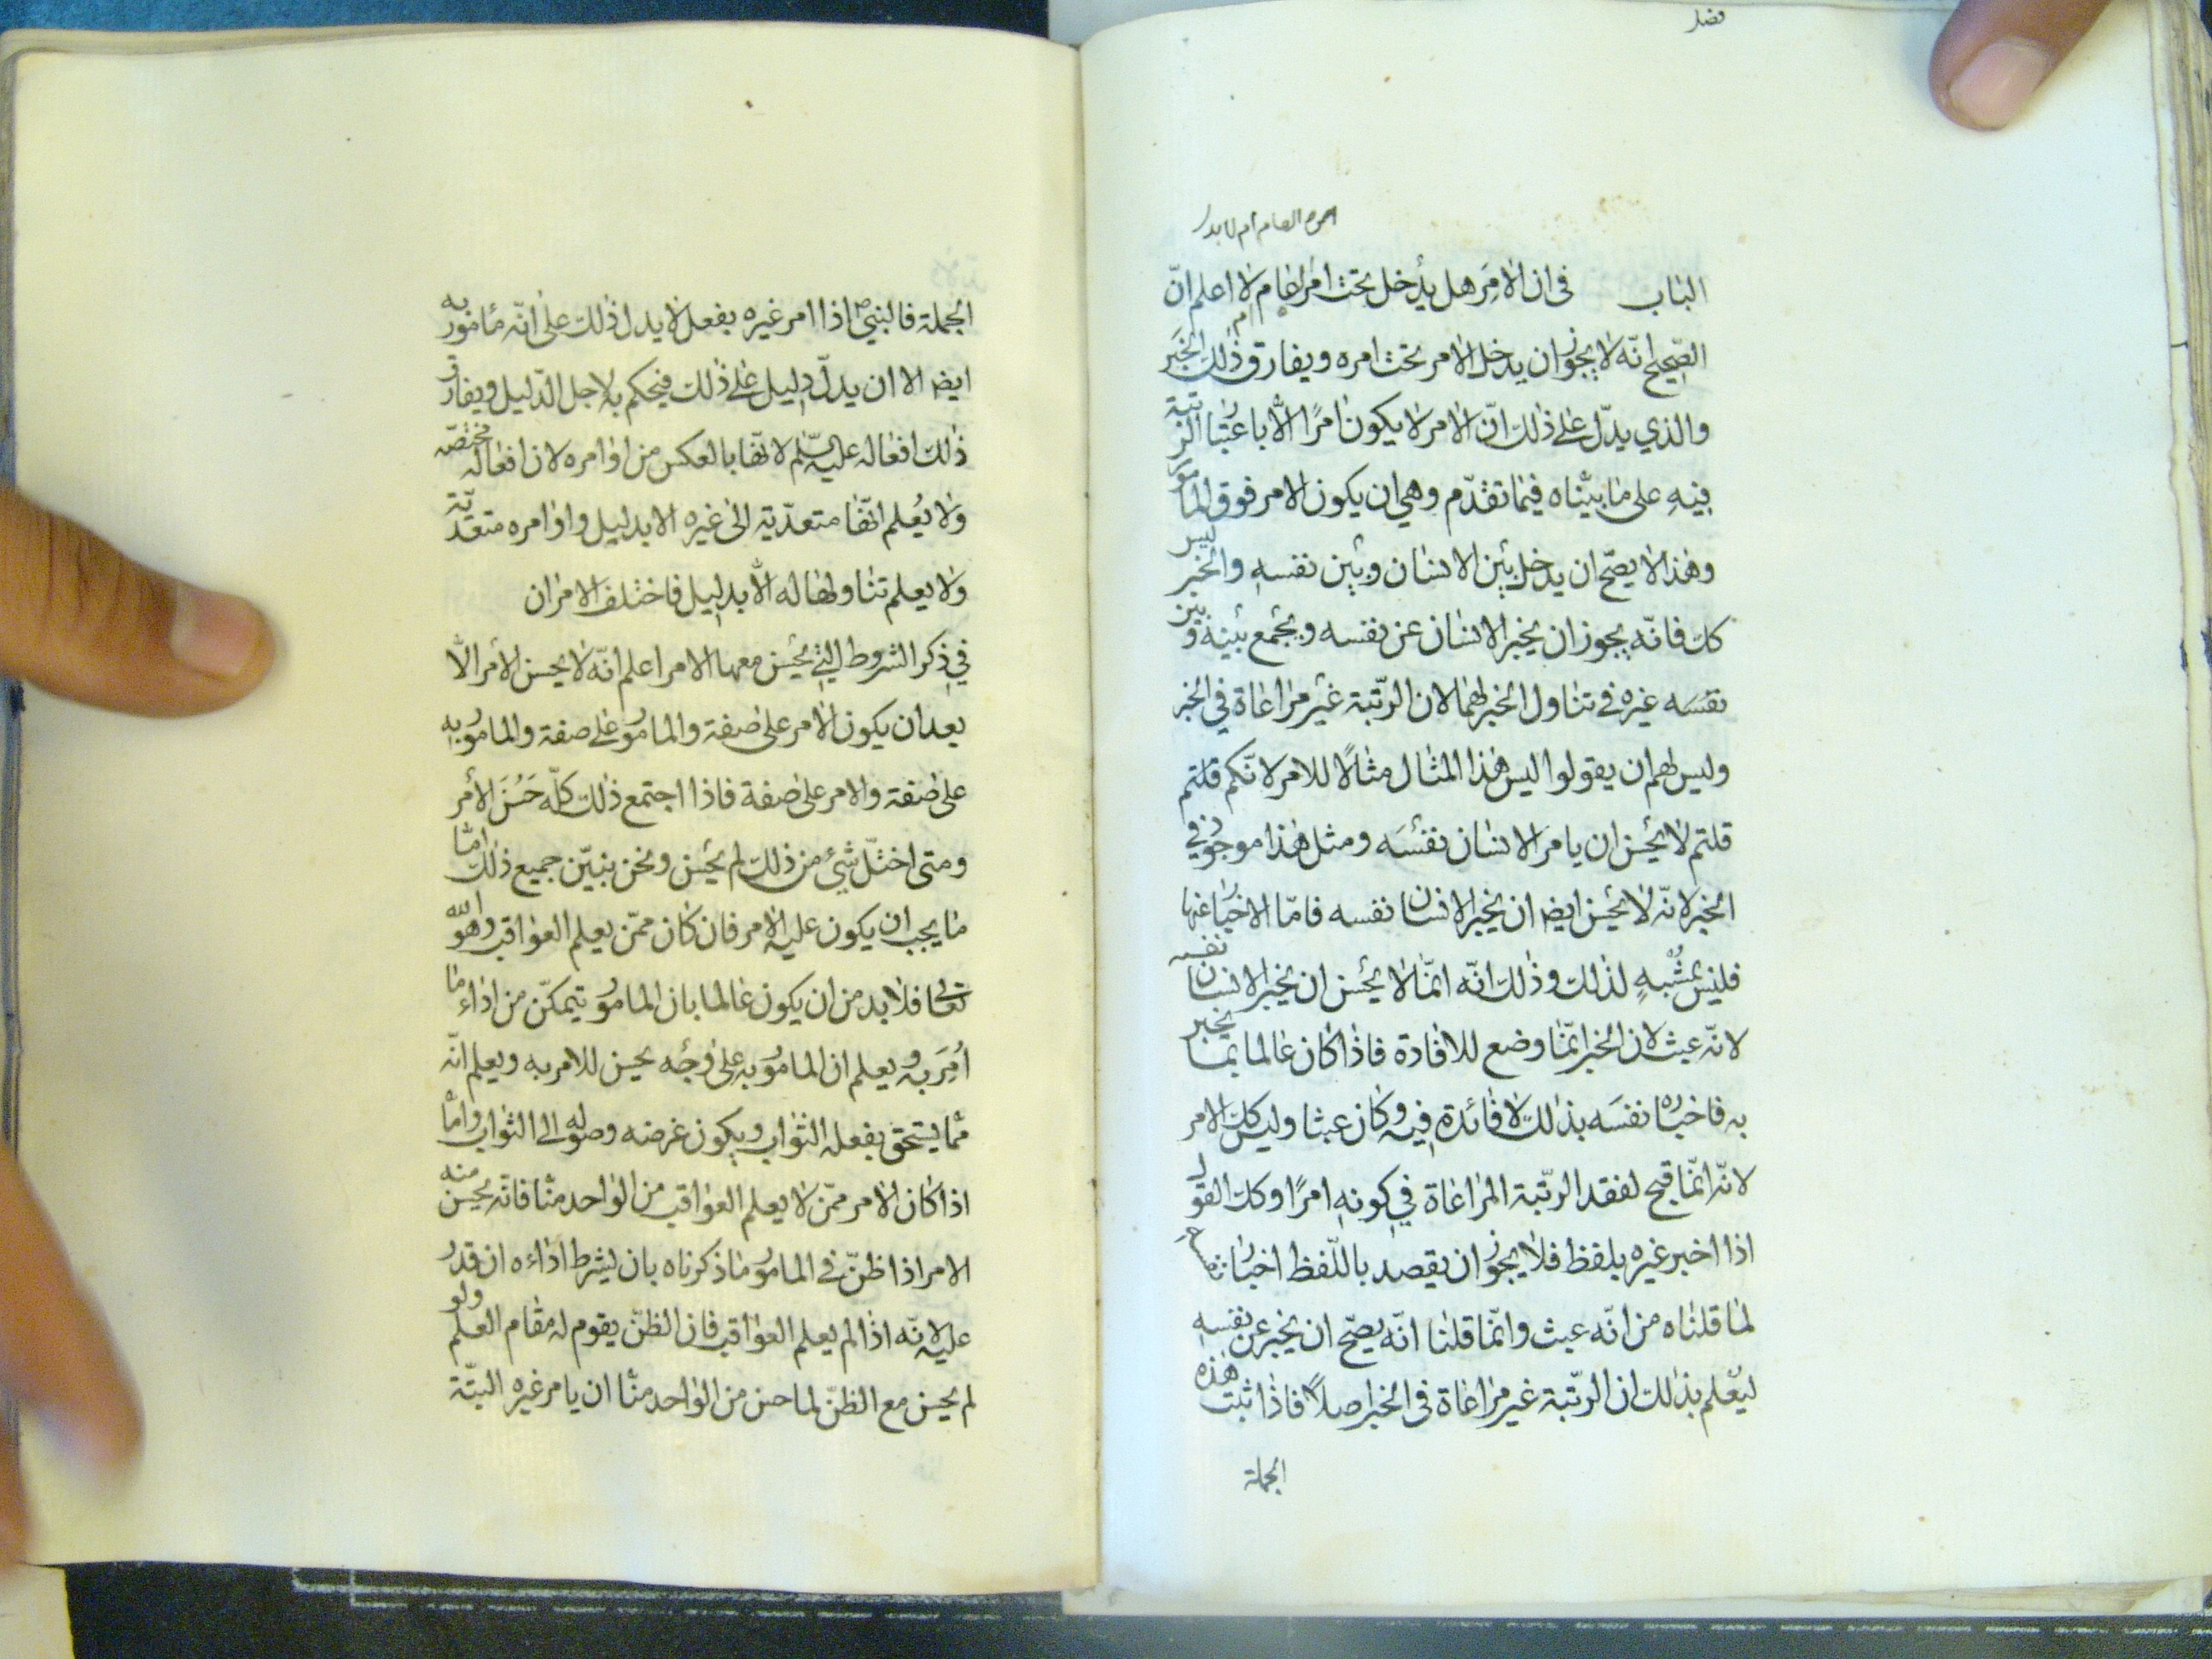 فصل
امره العام ام لا بد
الباب في ان الامر هل يدخل تحت امر العام لا اعلم انّ
الصّحيح انّه لا يجوز ان يدخل الامر تحت امره ويفارق ذلك الخبر
والذي يدّل على ذلك انّ الامر لا يكون امرًا الّا باعتبار الرتبة
فيه على ما بيّناه فيما تقدّم وهي ان يكون الامر فوق المامور
وهذا لا يصحّ ان يدخل بين الانسان وبين نفسه والخبر ليس
كك فانّه يجوز ان يخبر الانسان عن نفسه ويجمع بينه وبين
نفسه غيره في تناول الخبر لهما لان الرّتبة غير مراعاة في الخبر
وليس لهم ان يقولوا ليس هذا المثال مثالًا للامر لانّكم قلتم
قلتم لا يحسن ان يامر الانسان نفسَه ومثل هذا موجود في
الخبر لانّه لا يحسن ايضا ان يخبر الانسان نفسه فامّا الاخبار عنها
فليس بمشبه لذلك وذلك انّه انّما لا يحسن ان يخبر الانسان نفسه
لانّه عبث لان الخبر انّما وضع للافادة فاذا كان عالما بما يخبر
به فاخباره نفسَه بذلك لا فائدة فيه وكان عبثا وليس كك الامر
لانّه انّما قبح لفقد الرّتبة المراعاة في كونه امرًا وكك القول
اذا اخبر غيره بلفظ فلا يجوز ان يقصد باللّفظ اخبار
لما قلناه من انّه عبث وانّما قلنا انّه يصّح ان يخبر عن نفسه
ليعلم بذلك ان الرّتبة غير مراعاة في الخبر اصلاً فاذا ثبت هذه
الجملة
الجملة فالنبيّ ص اذا امر غيره بفعل لا يدل ذلك على انّه مامور به
ايضا الا ان يدلّ دليل على ذلك فيحكم به لاجل الدّليل ويفارق
ذلك افعاله عليه السّلم لانّها بالعكس من اوامره لان افعاله مختصّه
ولا يُعلم انّها متعدّية الى غيره الا بدليل واوامره متعدّية
ولا يعلم تناولها له الّا بدليل فاختلف الامران
في ذكر الشروط التي يحسن معها الامر اعلم انّه لا يحسن الامر الّا
بعد ان يكون الامر على صفة والمامور على صفة والمامور به
على صفة والامر على صفة فاذا اجتمع ذلك كلّه حَسُنَ الامر
ومتى اختلّ شيء من ذلك لم يحسن ونحن نبيّن جميع ذلك امّا
ما يجب ان يكون عليه الامر فان كان ممّن يعلم العواقب وهو الله
تعالى فلا بد من ان يكون عالما بان المامور يتمكّن من اداء ما
اُمِرَ به ويعلم ان المامور به على وجه يحسن للامر به ويعلم انّه
ممّا يستحق بفعله الثواب ويكون غرضه وصوله الى الثواب وامّا
اذا كان الامر ممّن لا يعلم العواقب من الواحد منّا فانّه يحسن منه
الامر اذا ظنّ في المامور ما ذكرناه بان يشرط اداءه ان قدر
عليه لانّه اذا لم يعلم العواقب فان الظنّ يقوم له مقام العلم ولو
لم يحسن مع الظنّ لما حسن من الواحد منّا ان يامر غيره البتّة